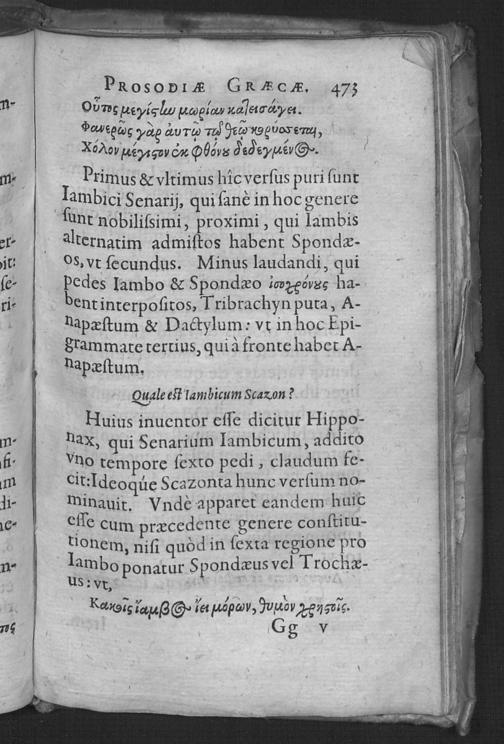 PROSODIÆ GRÆCÆ. 473
Οὗτος μεγίστην μωρίαν κατεισάγει.
Φανερῶς γὰρ αὐτῷ τῷ θεῷ κηρύσσεται,
Χόλον μέγιστον ἐκ φθόνου δεδεγμένος.
Primus & vltimus hîc versus puri sunt
Iambici Senarij, qui sanè in hoc genere
sunt nobilissimi, proximi, qui Iambis
alternatim admistos habent Spondæ-
os, vt secundus. Minus laudandi, qui
pedes Iambo & Spondæo ἰσοχρόνους ha-
bent interpositos, Tribrachyn puta, A-
napæstum & Dactylum: vt in hoc Epi-
grammate tertius, qui à fronte habet A-
napæstum.
Quale est Iambicum Scazon?
Huius inuentor esse dicitur Hippo-
nax, qui Senarium Iambicum, addito
vno tempore sexto pedi, claudum fe-
cit: Ideoque Scazonta hunc versum no-
minauit. Vndè apparet eandem huic
esse cum præcedente genere constitu-
tionem, nisi quòd in sexta regione pro
Iambo ponatur Spondæus vel Trochæ-
us: vt,
Κακοῖς ἴαμβος ἵει μόρον, θυμὸν χρηστοῖς.
Gg v
n-
m-
er-
oit:
se-
ri-
m-
fi-
um
di-
ne-
n-
τος